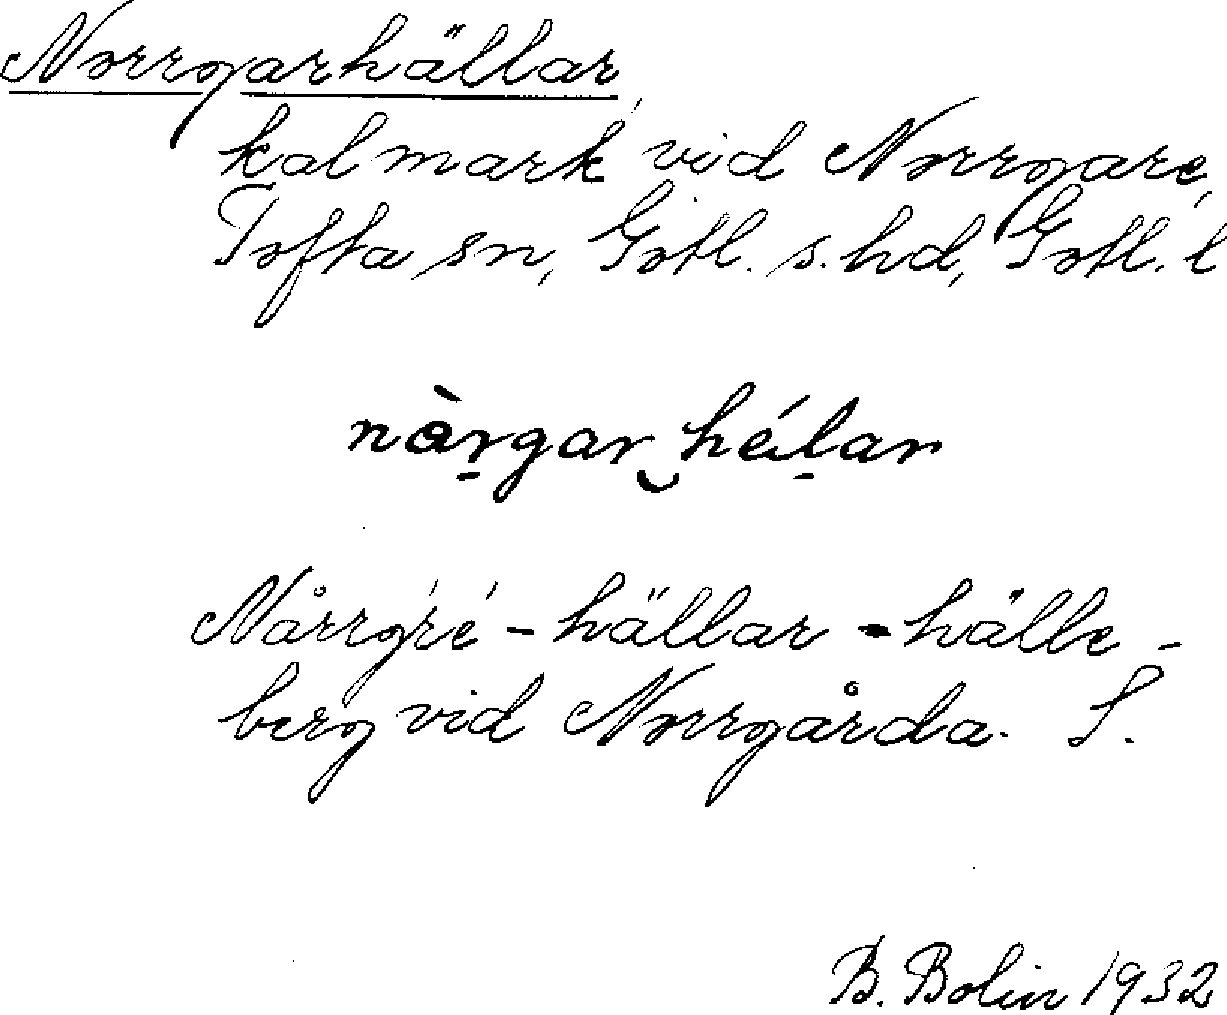 Norrgarhällar,
kalmark vid Norrgare,
Tofta sn, Gotl. s. hd, Gotl. l
nàr̠gar‿hél̠ar
Nårrgré - hällar - hälle-
berg vid Norrgårda. S.
B. Bolin 1932